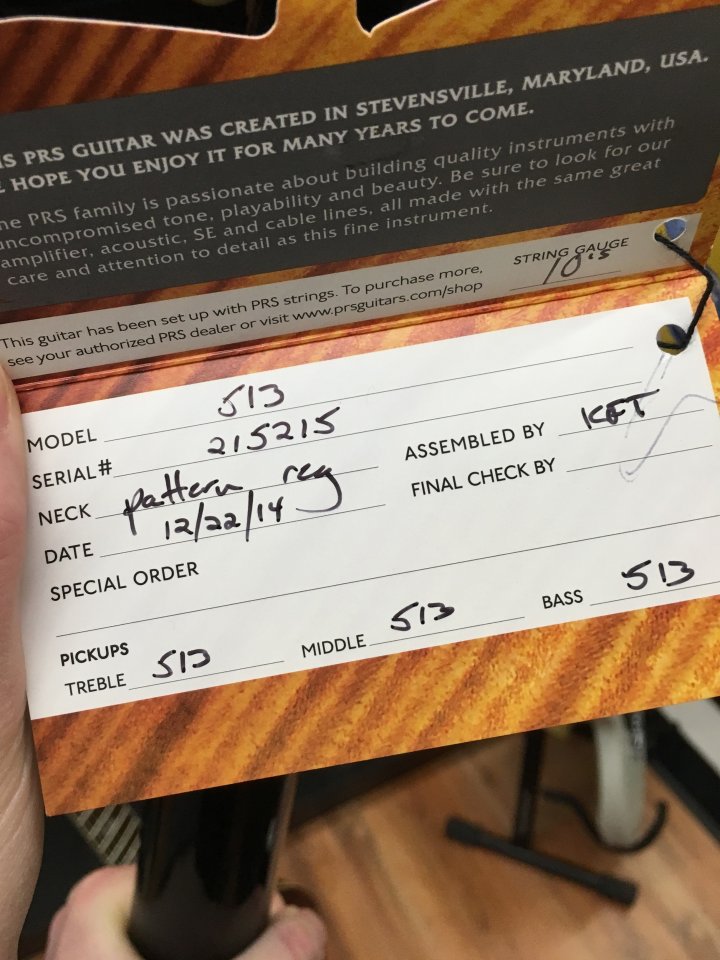 IS PRS GUITAR WAS CREATED IN STEVENSVILLE, MARYLAND, USA.
E HOPE YOU ENJOY IT FOR MANY YEARS TO COME.
he PRS family is passionate about building quality instruments with
uncompromised tone, playability and beauty. Be sure to look for our
amplifier, acoustic, SE and cable lines, all made with the same great
care and attention to detail as this fine instrument.
This guitar has been set up with PRS strings. To purchase more,
see your authorized PRS dealer or visit www.prsguitars.com/shop
STRING GAUGE
10's
MODEL 513
SERIAL# 215215
NECK pattern reg
DATE 12/22/14
ASSEMBLED BY KFT
FINAL CHECK BY
SPECIAL ORDER
PICKUPS
TREBLE 513 MIDDLE 513 BASS 513